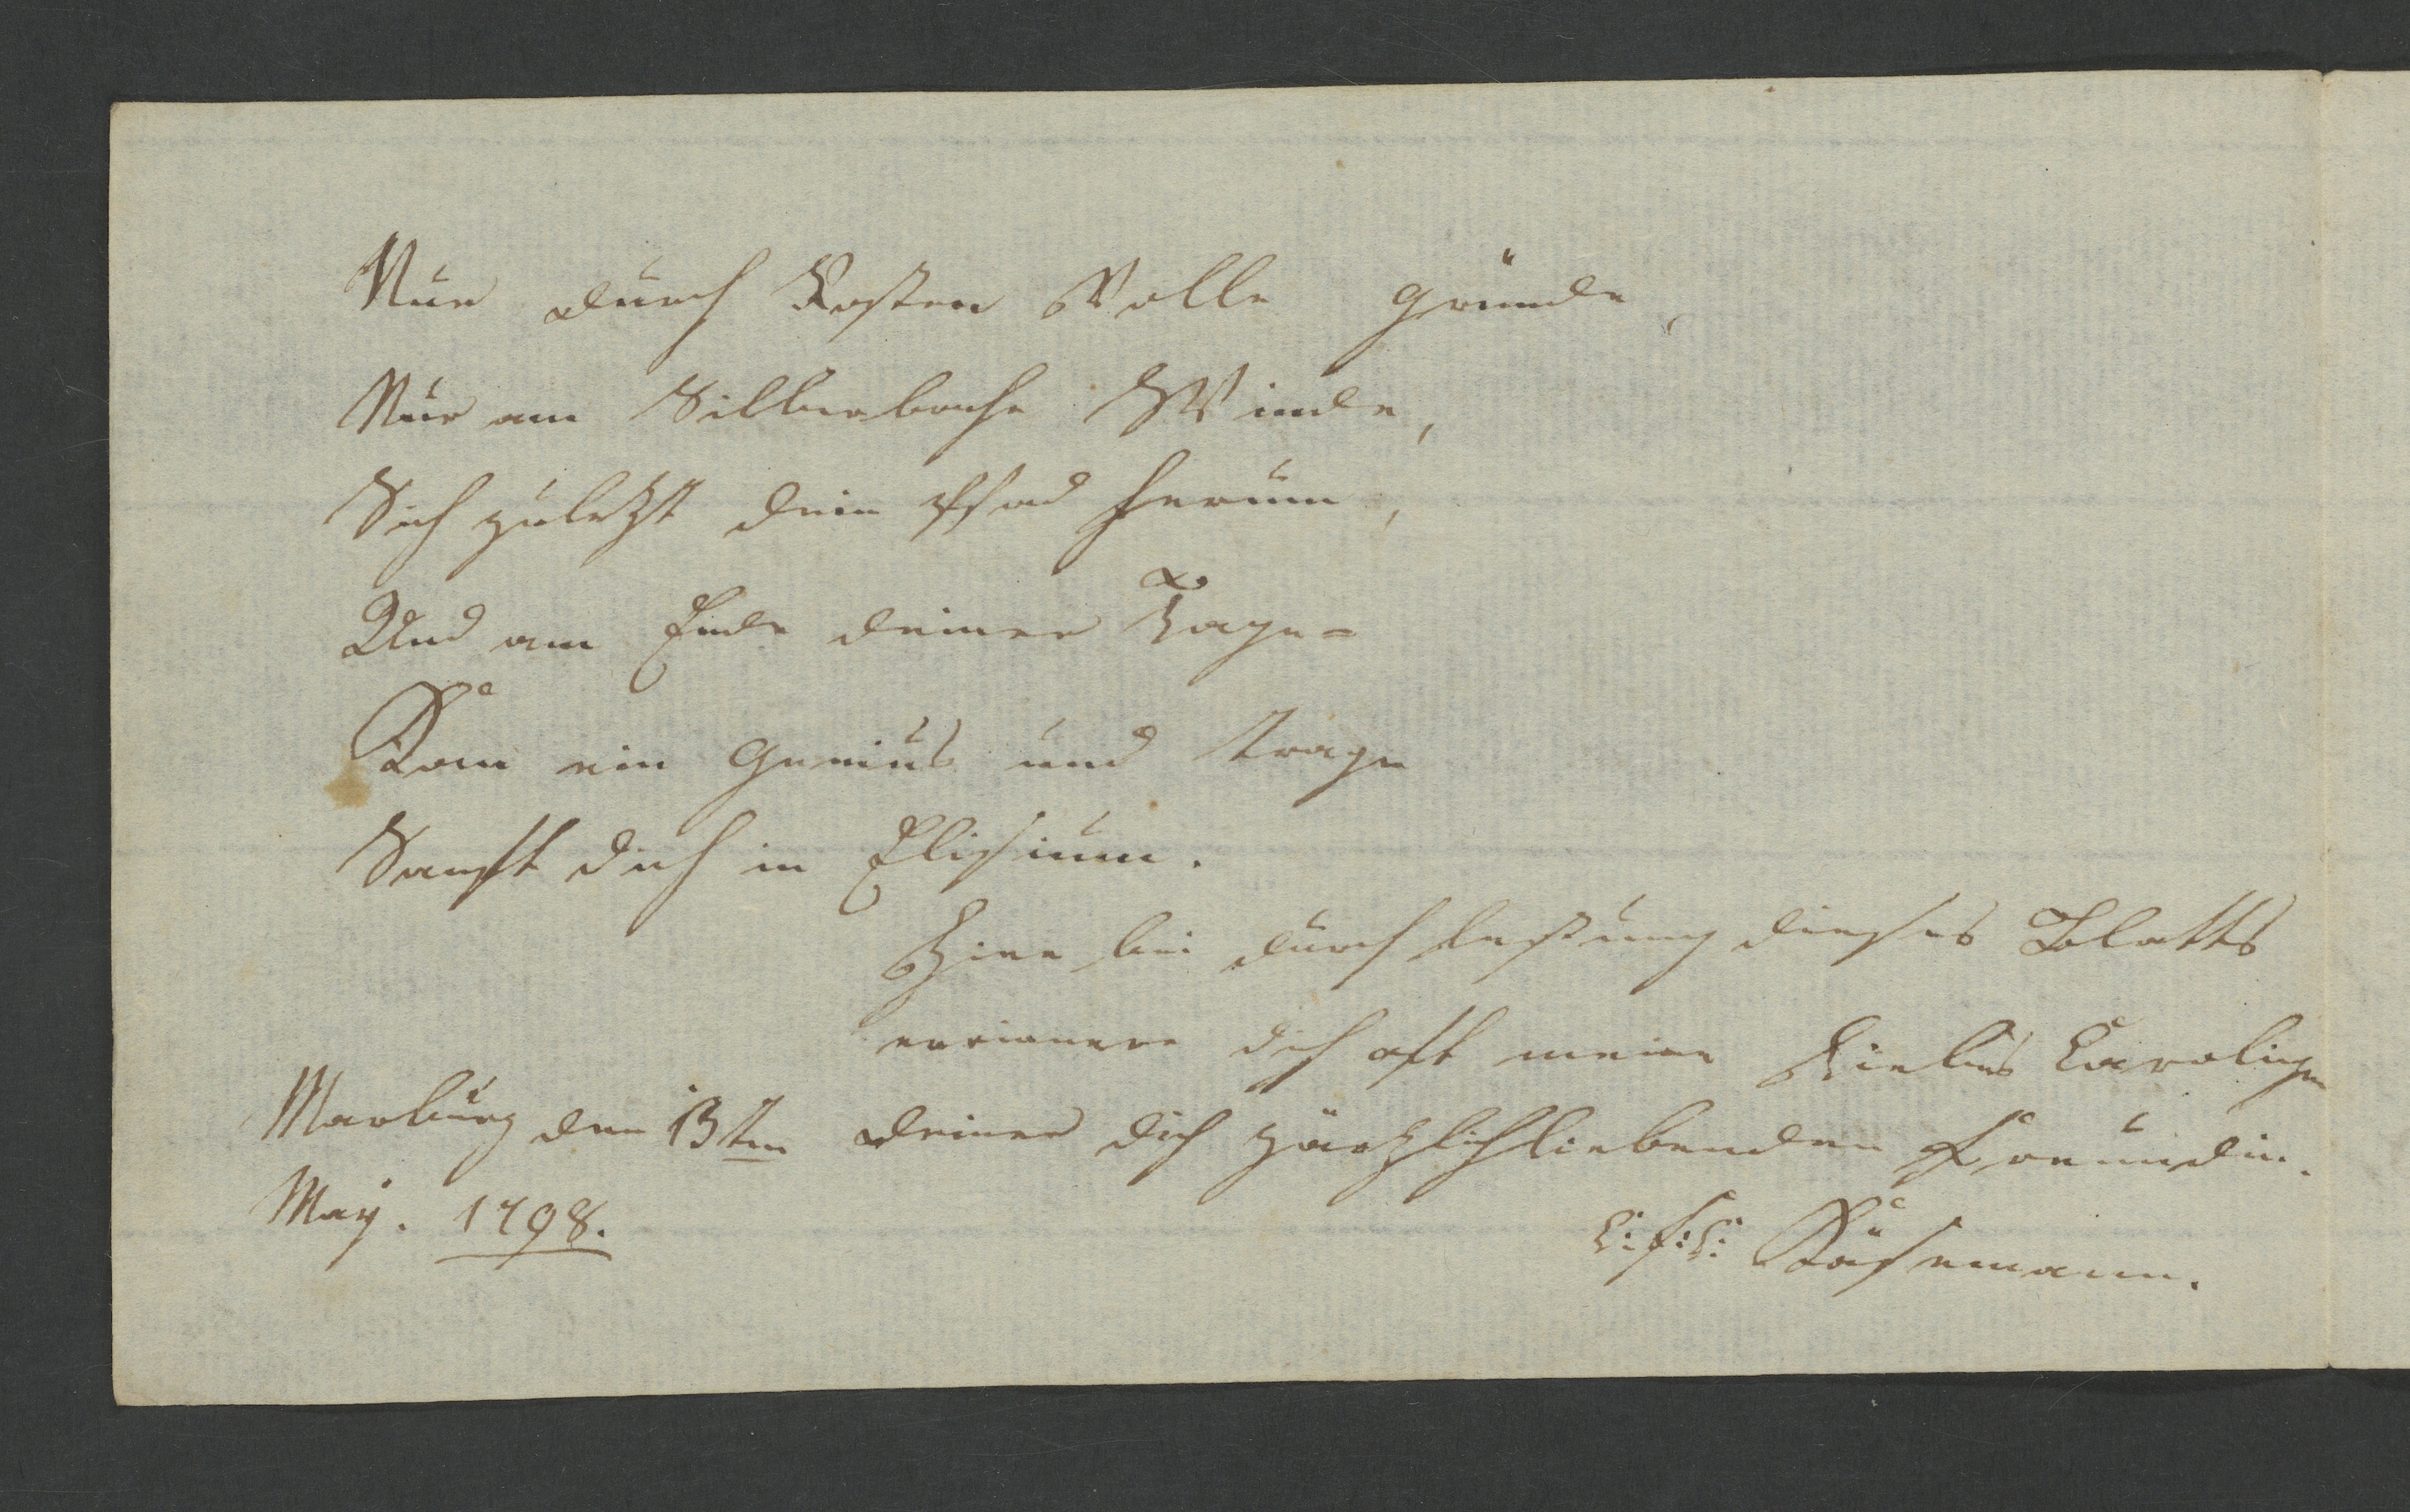 Nur durch Rosten Volle gründe,
Nur am Silberbache Winde,
Sich zuletzt dein Pfad herum,
Und am Ende deiner Tage=
Kom ein Genius und trage
Sanft dich in Elisium.
Hier bei durch lesung dieses Blatts
errinnere dich oft meine liebes Carolingen
Marburg den 13ten deiner dich zärtzlichliebenden Freundin.
May. 1798. Käsemann.